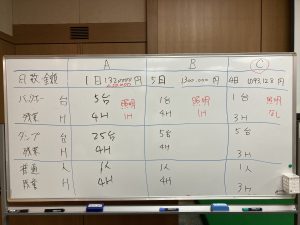 A B C
日数金額 1日 1320000円 5日 1300.000円 4日 1093,128円
バックホー 台 5台 照明 1台 照明 1台 照明
残業 H 4H 1H 4H 1H 3H
ダンプ 台 25台 5台 5台
残業 H 4H 4H 3H
普通 人 1人 1人 1人
残業 H 4H 4H 3H